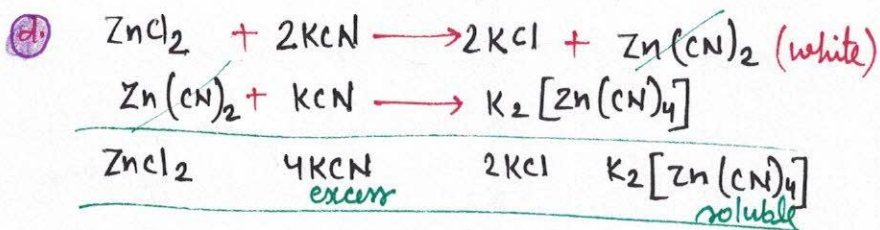 d. ZnCl2 + 2KCN ⟶ 2KCl + Zn(CN)2 (white)
Zn(CN)2 + KCN ⟶ K2[Zn(CN)4]
ZnCl2 4KCN 2KCl K2[Zn(CN)4]
excess soluble